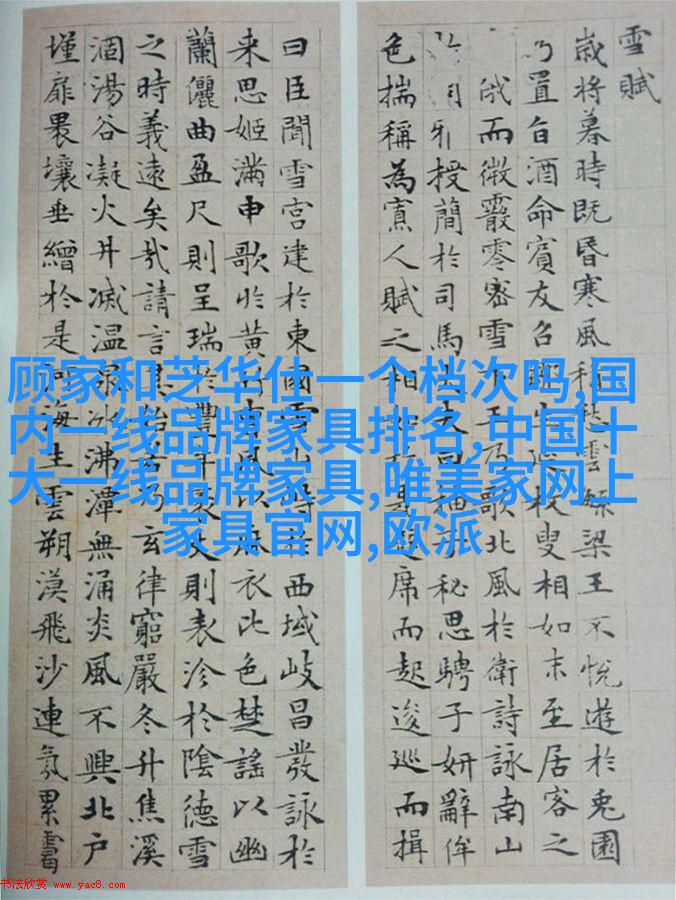 雪賦
歲将暮時既昏寒風雲繁梁王不悅遊於兎園
乃置旨酒命賓友召生延枚叟相如末至居客之
俄而微霰零密雪下王乃歌北風於衛詩詠南山
雅授簡於司馬大夫曰抽子秘思騁子妍辭侔
色揣稱為寡人賦之相如於是避席而起逡巡而揖
曰臣聞雪宮建於東國雪山峙於西域岐昌發詠於
来思姬滿申歌於黄竹曹風以麻衣比色楚謠以幽
蘭儷曲盈尺則呈瑞於豐年袤丈則表沴於陰德雪
之時義遠矣哉請言其始若乃玄律窮嚴冬升焦溪
涸湯谷凝火井滅温泉冰沸潭無涌炎風不興北户
墐扉壤垂繒於是河海生雲朔漠飛沙連氛累靄
顾家和芝华仕一个档次吗,国
内一线品牌家具排名,中国十
大一线品牌家具,唯美家网上
家具官网,欧派
书法欣赏 www.yac8.com